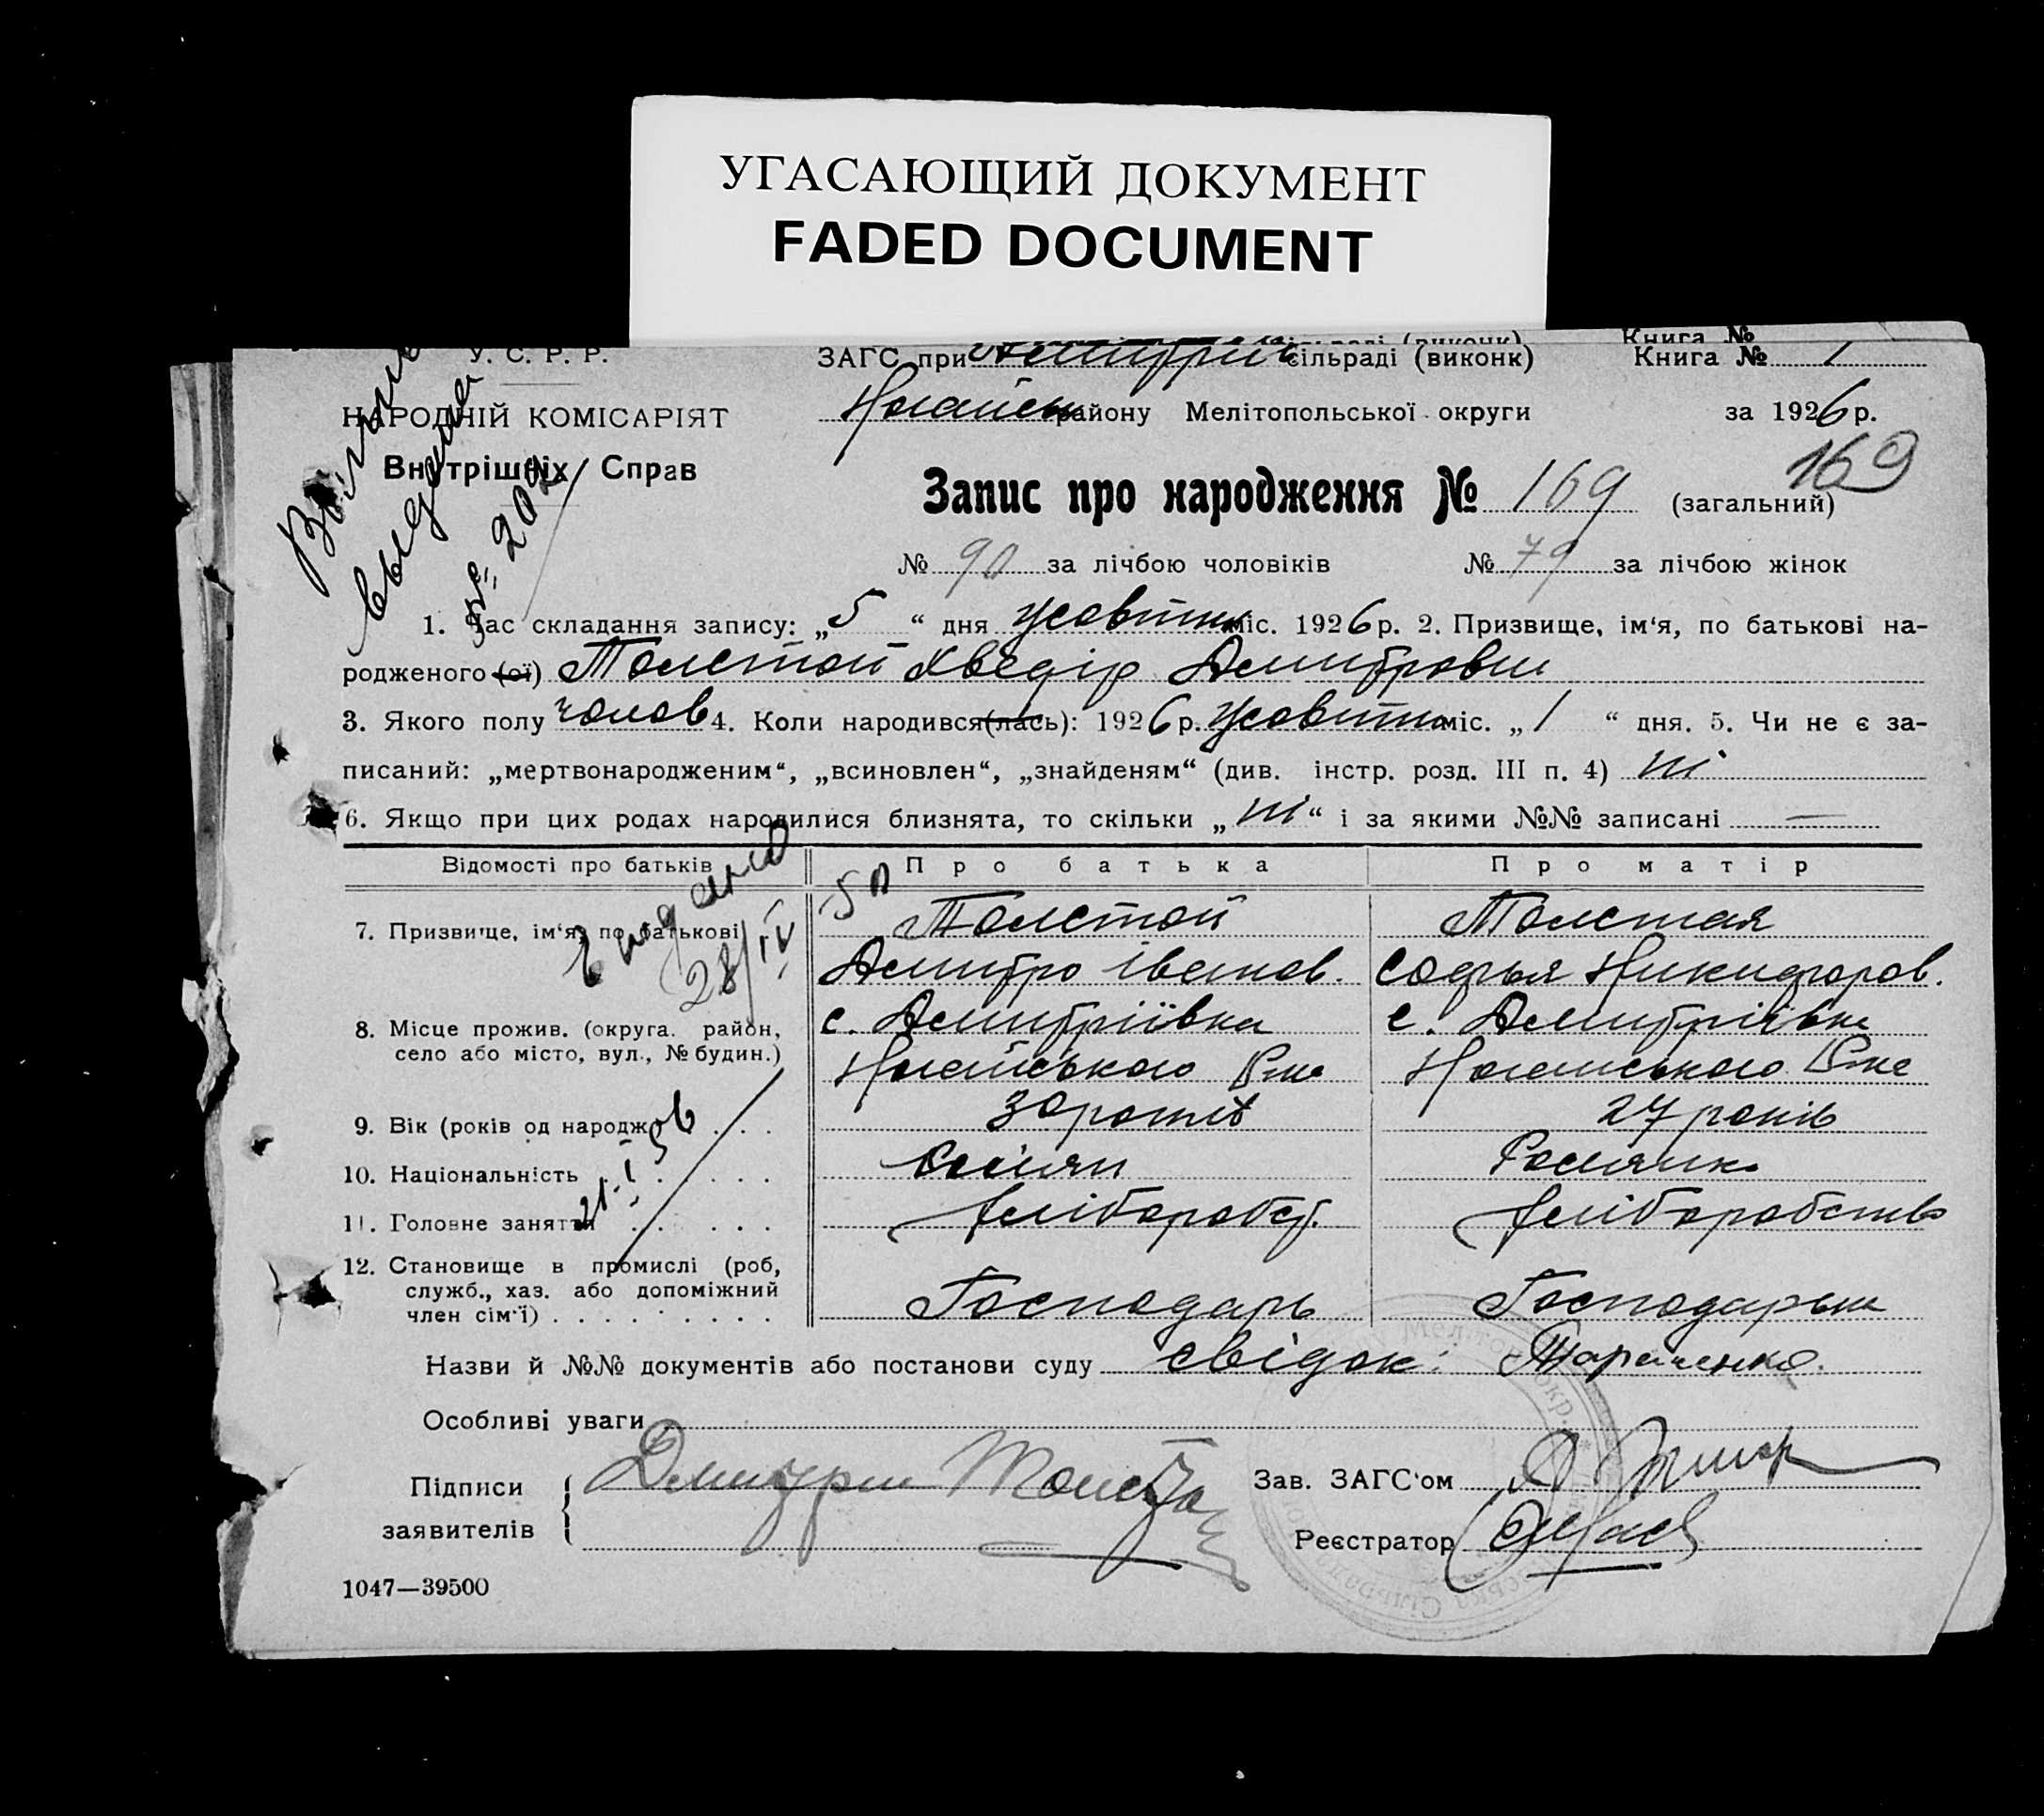 УГАСАЮЩИЙ ДОКУМЕНТ
FADED DOCUMENT
Книга №
У. С. Р. Р.
ЗАГС при сільраді (виконк) Книга № 1
НАРОДНІЙ КОМІСАРІЯТ
району Мелітопольської округи за 1926 р.
Внутрішніх Справ
169
Запис про народження № 169 (загальний)
№ 90 за лічбою чоловіків № 79 за лічбою жінок
1. Час складання запису: „5“ дня жовтня міс. 1926 р. 2. Призвище, ім‘я, по батькові на-
родженого (ої) Толстой Хведір Дмитрович
3. Якого полу чолов 4. Коли народився(лась): 1926 р. жовтня міс. „1“ дня. 5. Чи не є за-
писаний: „мертвонародженим“, „всиновлен“, „знайденям“ (див. інстр. розд. III п. 4) ні
6. Якщо при цих родах народилися близнята, то скільки „ні“ і за якими №№ записані —
Відомості про батьків Про батька Про матір
7. Призвище, ім‘я, по батькові Толстой Толстая
Дмитро Іванов. Софья Никифоров.
8. Місце прожив. (округа. район, с. Дмитріївка с. Дмитріївка
село або місто, вул., № будин.) Ногайського Р-на Ногайського Р-на
9. Вік (років од народж. 30 років 27 років
10. Національність Росіян Росіянка
11. Головне заняття хліборобст. хліборобство
12. Становище в промислі (роб,
служб., хаз. або допоміжний
член сім‘ї) Господарь Господарька
Назви й №№ документів або постанови суду свідок: Тараненко.
Особливі уваги
Підписи Дмитрий Толстой Зав. ЗАГС‘ом
заявителів Реєстратор
1047—39500
выдано
28/IV
21.I 56